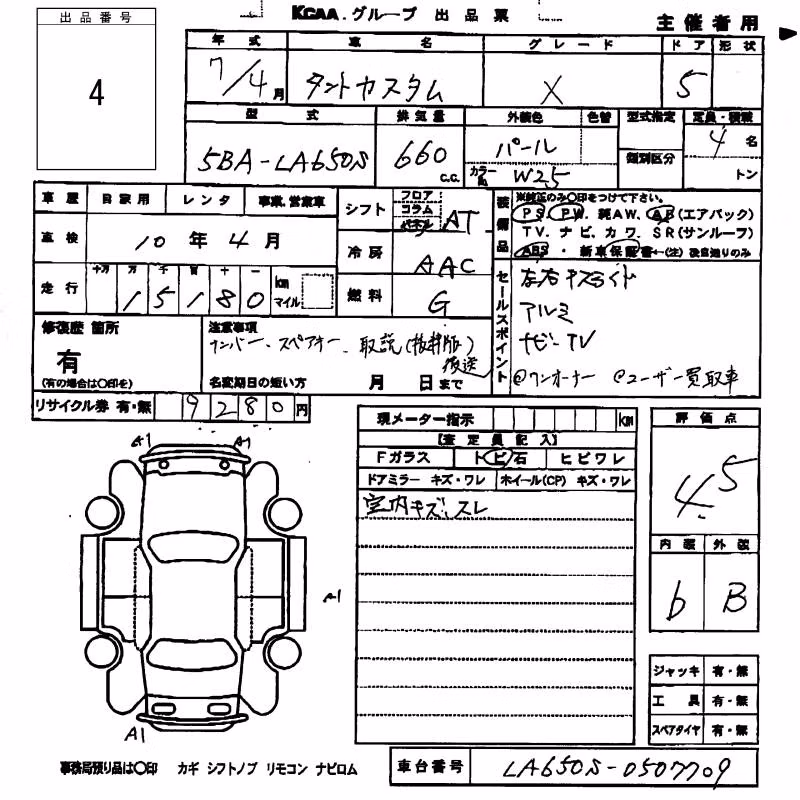 KCAA.グループ 出品票
主催者用
出品番号
4
年式 車名 グレード ドア 形状
7/4月 タントカスタム X 5
型式 排気量 外装色 色替 型式指定 定員・積載
類別区分
5BA-LA650S 660 c.c. パール カラーNo. W25 4名
トン
車歴 自家用 レンタ 事業,営業車
シフト フロア コラム パネル AT
車検 10年4月
冷房 AAC
走行 十万 万 千 百 十 一 km マイル
15180
燃料 G
装備品
※純正のみ○印をつけて下さい。
PS. PW. 純AW. AB(エアバック)
TV. ナビ. カワ. SR(サンルーフ)
ABS・新車保証書←(注)後日送りのみ
セールスポイント
左右Pスライド
アルミ
ナビ-TV
@ワンオーナー @ユーザー買取車
修復歴 箇所
有
(有の場合は○印を)
注意事項
ナンバー、スペアキー、取説(抜粋版)
後送
名変期日の短い方 月 日まで
リサイクル券 有・無 9280円
現メーター指示 km
【査定員記入】
Fガラス トビ石 ヒビワレ
ドアミラー キズ・ワレ ホイール(CP) キズ・ワレ
室内キズ、スレ
評価点
4.5
内装 外装
b B
A1 A1
A1
A1
ジャッキ 有・無
工具 有・無
スペアタイヤ 有・無
事務局預り品は○印 カギ シフトノブ リモコン ナビロム
車台番号 LA650S-0507709